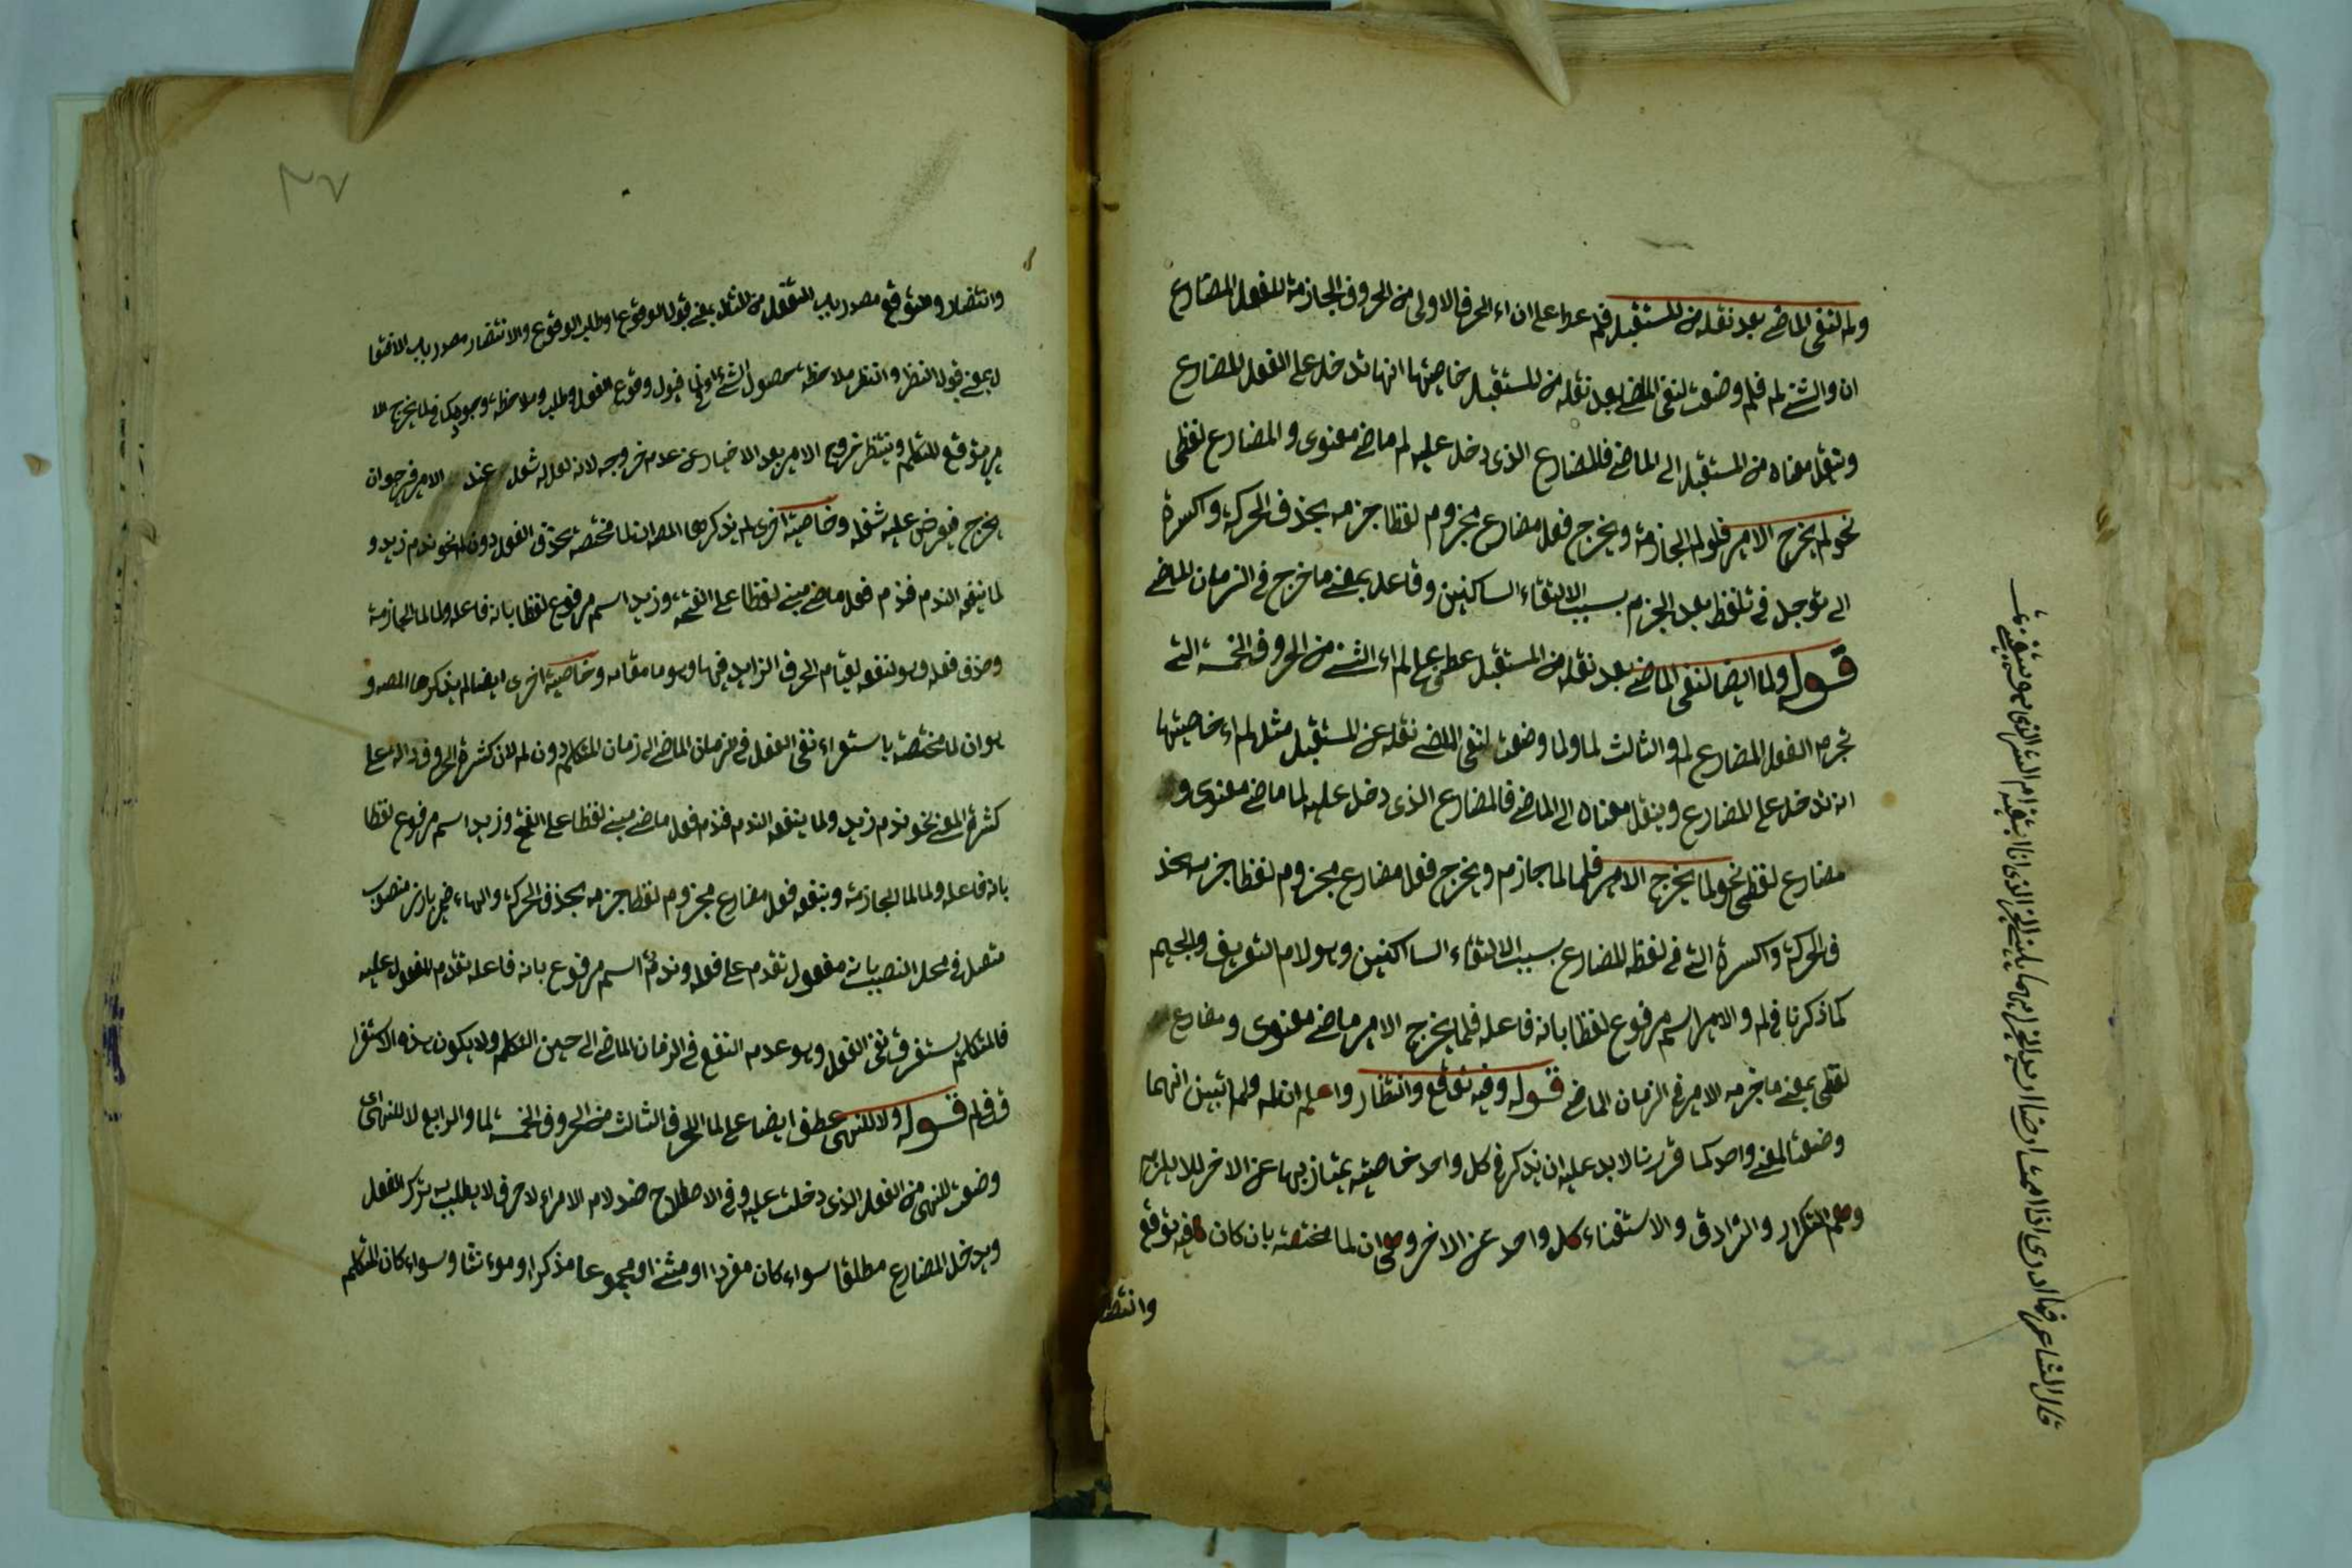 ولم لنفى الماضے بعد نقله من المستقبل فلم عطف على ان اء الحرف الاولى من الحروف الجازمة للفعل المضارع
ان والثنے لم فلم وضعت لنفى الماضے بعد نقله من المستقبل خاصيتها انها تدخل على الفعل المضارع
وتنقل معناه من المستقبل الى الماضے فالمضارع الذى دخل عليه لم ماضے معنوى و المضارع لفظى
نحو لم يخرج الامير فلو لم الجازمة ويخرج فعل مضارع مجزوم لفظا جزمه بحذف الحركة واكسرة
الے توجد فے تلفظ بعد الجزم بسبب الالتقاء الساكنين وفاعله بمعنے ما خرج فے الزمان الماضے
قوله ولما ايضا لنفى الماضے بعد نقله من المستقبل عطف على لم اء الثنے من الحروف الخمسة التے
تجزم الفعل المضارع لم والثالث لما ولما وضعت لنفى الماضے نقله عن المستقبل مثل لم اء خاصيتها
انه تدخل على المضارع وينقل معناه الى الماضے فالمضارع الذى دخل عليه لما ماضے معنوى و
مضارع لفظى نحو لما يخرج الامير فلما لما جازم ويخرج فعل مضارع مجزوم لفظا جزمه بحذ
ف الحركة واكسرة التے فے لفظه المضارع بسبب الالتقاء الساكنين وهو لام التعريف والجيم
كما ذكرنا فے لم والامير اسم مرفوع لفظا بانه فاعله فلما يخرج الامير ماضے معنوى ومضارع
لفظى بمعنے ما خرجه الامير فے الزمان الماضے قوله وفيه توقع وانتظار واعلم ان لم ولما تبين انهما
وضعت لمعنے واحد كما قررنا لا بد عليه ان يذكر فے كل واحد خاصيته يمتاز بها عن الاخر لئلا يلزم
وهم التكرار والترادف والاستغناء كل واحد عن الاخر وهى ان لما مختصه بان كان فيه توقع
وانتظا
وانتظار وهتوقع مصدر باب التفعل من للنقل بمعنے قبول الوقوع اوطلب الوقوع والانتظار مصدر باب الافتعا
ل بمعنے قبول النظر وانتظر ملاحظه حصول الشئ قبول وقوع الفعل وطلب وملاحظه وجود لما يخرج الا
مير متوقع للتكلم وينتظر خروج الامير بعد الاخبار عن عدم خروجه لانه لعل له شغل عند الامير فرجوان
يخرج فيعرض عليه شغله وخاصيته اخرى لم يذكرها المصه ان لما مختصه بحذف الفعل دون لم نحو ندم زيد و
لما ينفعه الندم فندم فعل ماضے مبنے لفظا على الفتحة وزيد اسم مرفوع لفظا بانه فاعله ولما لما الجازمة
وحذف فعله وهو لنفعه لقيام الحرف الزايد فيها وهو ما مقامه وخاصيته اخرى ايضا لم يذكرها المصه و
هو ان لما مختصه باستغراء نفى الفعل فے الزمان الماضے الے زمان المتكلم دون لم لان كثرة الحروف دالة على
كثرة المعنے نحو ندم زيد ولما ينفعه الندم فندم فعل ماضے مبنے لفظا على الفتح وزيد اسم مرفوع لفظا
بانه فاعله ولما لما الجازمة وينفعه فعل مضارع مجزوم لفظا جزمه بحذف الحركة والهاء ضمير بارز منصوب
متصل فے محل النصب بانه مفعول تقدم على فعله وندم اسم مرفوع بانه فاعله تقدم المفعول عليه
فالمتكلم يستغرق نفى الفعل وهو عدم النفع فے الزمان الماضے الى حين التكلم ولا يكون هذه الاستغرا
ق فے لم قوله ولا للنهى عطف ايضا على لما الحرف الثالث من الحروف الخمسة لما والرابع لا للنهى اى
وضعت للنهى من الفعل الذى دخلت عليه وفے الاصطلاح ضد لام الامر اء لا حرف لا يطلب به ترك الفعل
ويدخل المضارع مطلقا سواء كان مفردا او مثنے او مجموعا مذكرا او مؤنثا وسواء كان المتكلم
قال الشاعر فما ادرى اذا يممت ارضا اريد الخير ايهما يلينے االخير الذى انا ابتغيه ام الشر الذى هو يبتغينے
٣٧